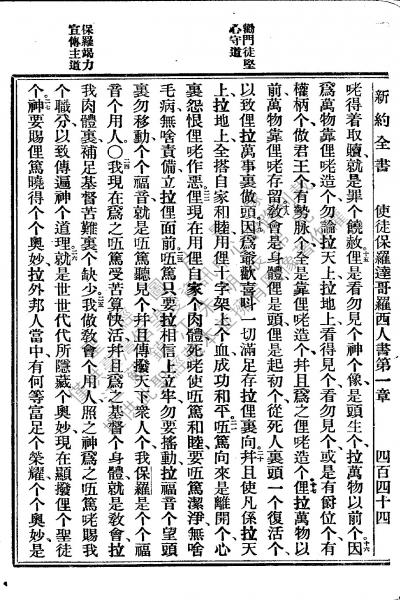 新約全書 使徒保羅達哥羅西人書第一章 四百四十四
勸門徒堅
心守道
保羅竭力
宣傳主道
咾得着取贖就是罪个饒赦十五俚是看勿見个神个像是頭生个拉萬物以前个十六因
爲萬物靠俚咾造个勿論拉天上拉地上看得見个看勿見个或是有爵位个有
權柄个做君王个有勢脉个全是靠俚咾造个幷且爲之俚咾造个十七俚拉萬物以
前萬物靠俚咾存留十八敎會是身體俚是頭俚是起初个從死人裏頭一个復活个
以致俚拉萬事裏做頭十九因爲爺歡喜呌一切滿足存拉俚裏向二十幷且使凡係拉天
上拉地上全搭自家和睦用俚十字架上个血成功和平二一唔篤向來是離開个心
裏怨恨俚咾作惡俚二二現在用俚自家个肉體死咾使唔篤和睦要唔篤潔淨無啥
毛病無啥責備立拉俚面前二三唔篤只要拉相信上立牢勿要搖動拉福音个望頭
裏勿移動个个福音就是唔篤聽見个幷且傳撥天下衆人个我保羅是个个福
音个用人○二四我現在爲之唔篤受苦算快活幷且爲之基督个身體就是敎會拉
我肉體裏補足基督苦難裏个缺少二五我做敎會个用人照之神爲之唔篤咾賜我
个職分以致傳遍神个道理二六就是世世代代所隱藏个奧妙現在顯撥俚个聖徒
个二七神要賜俚篤曉得个个奧妙拉外邦人當中有何等富足个榮耀个个奧妙是